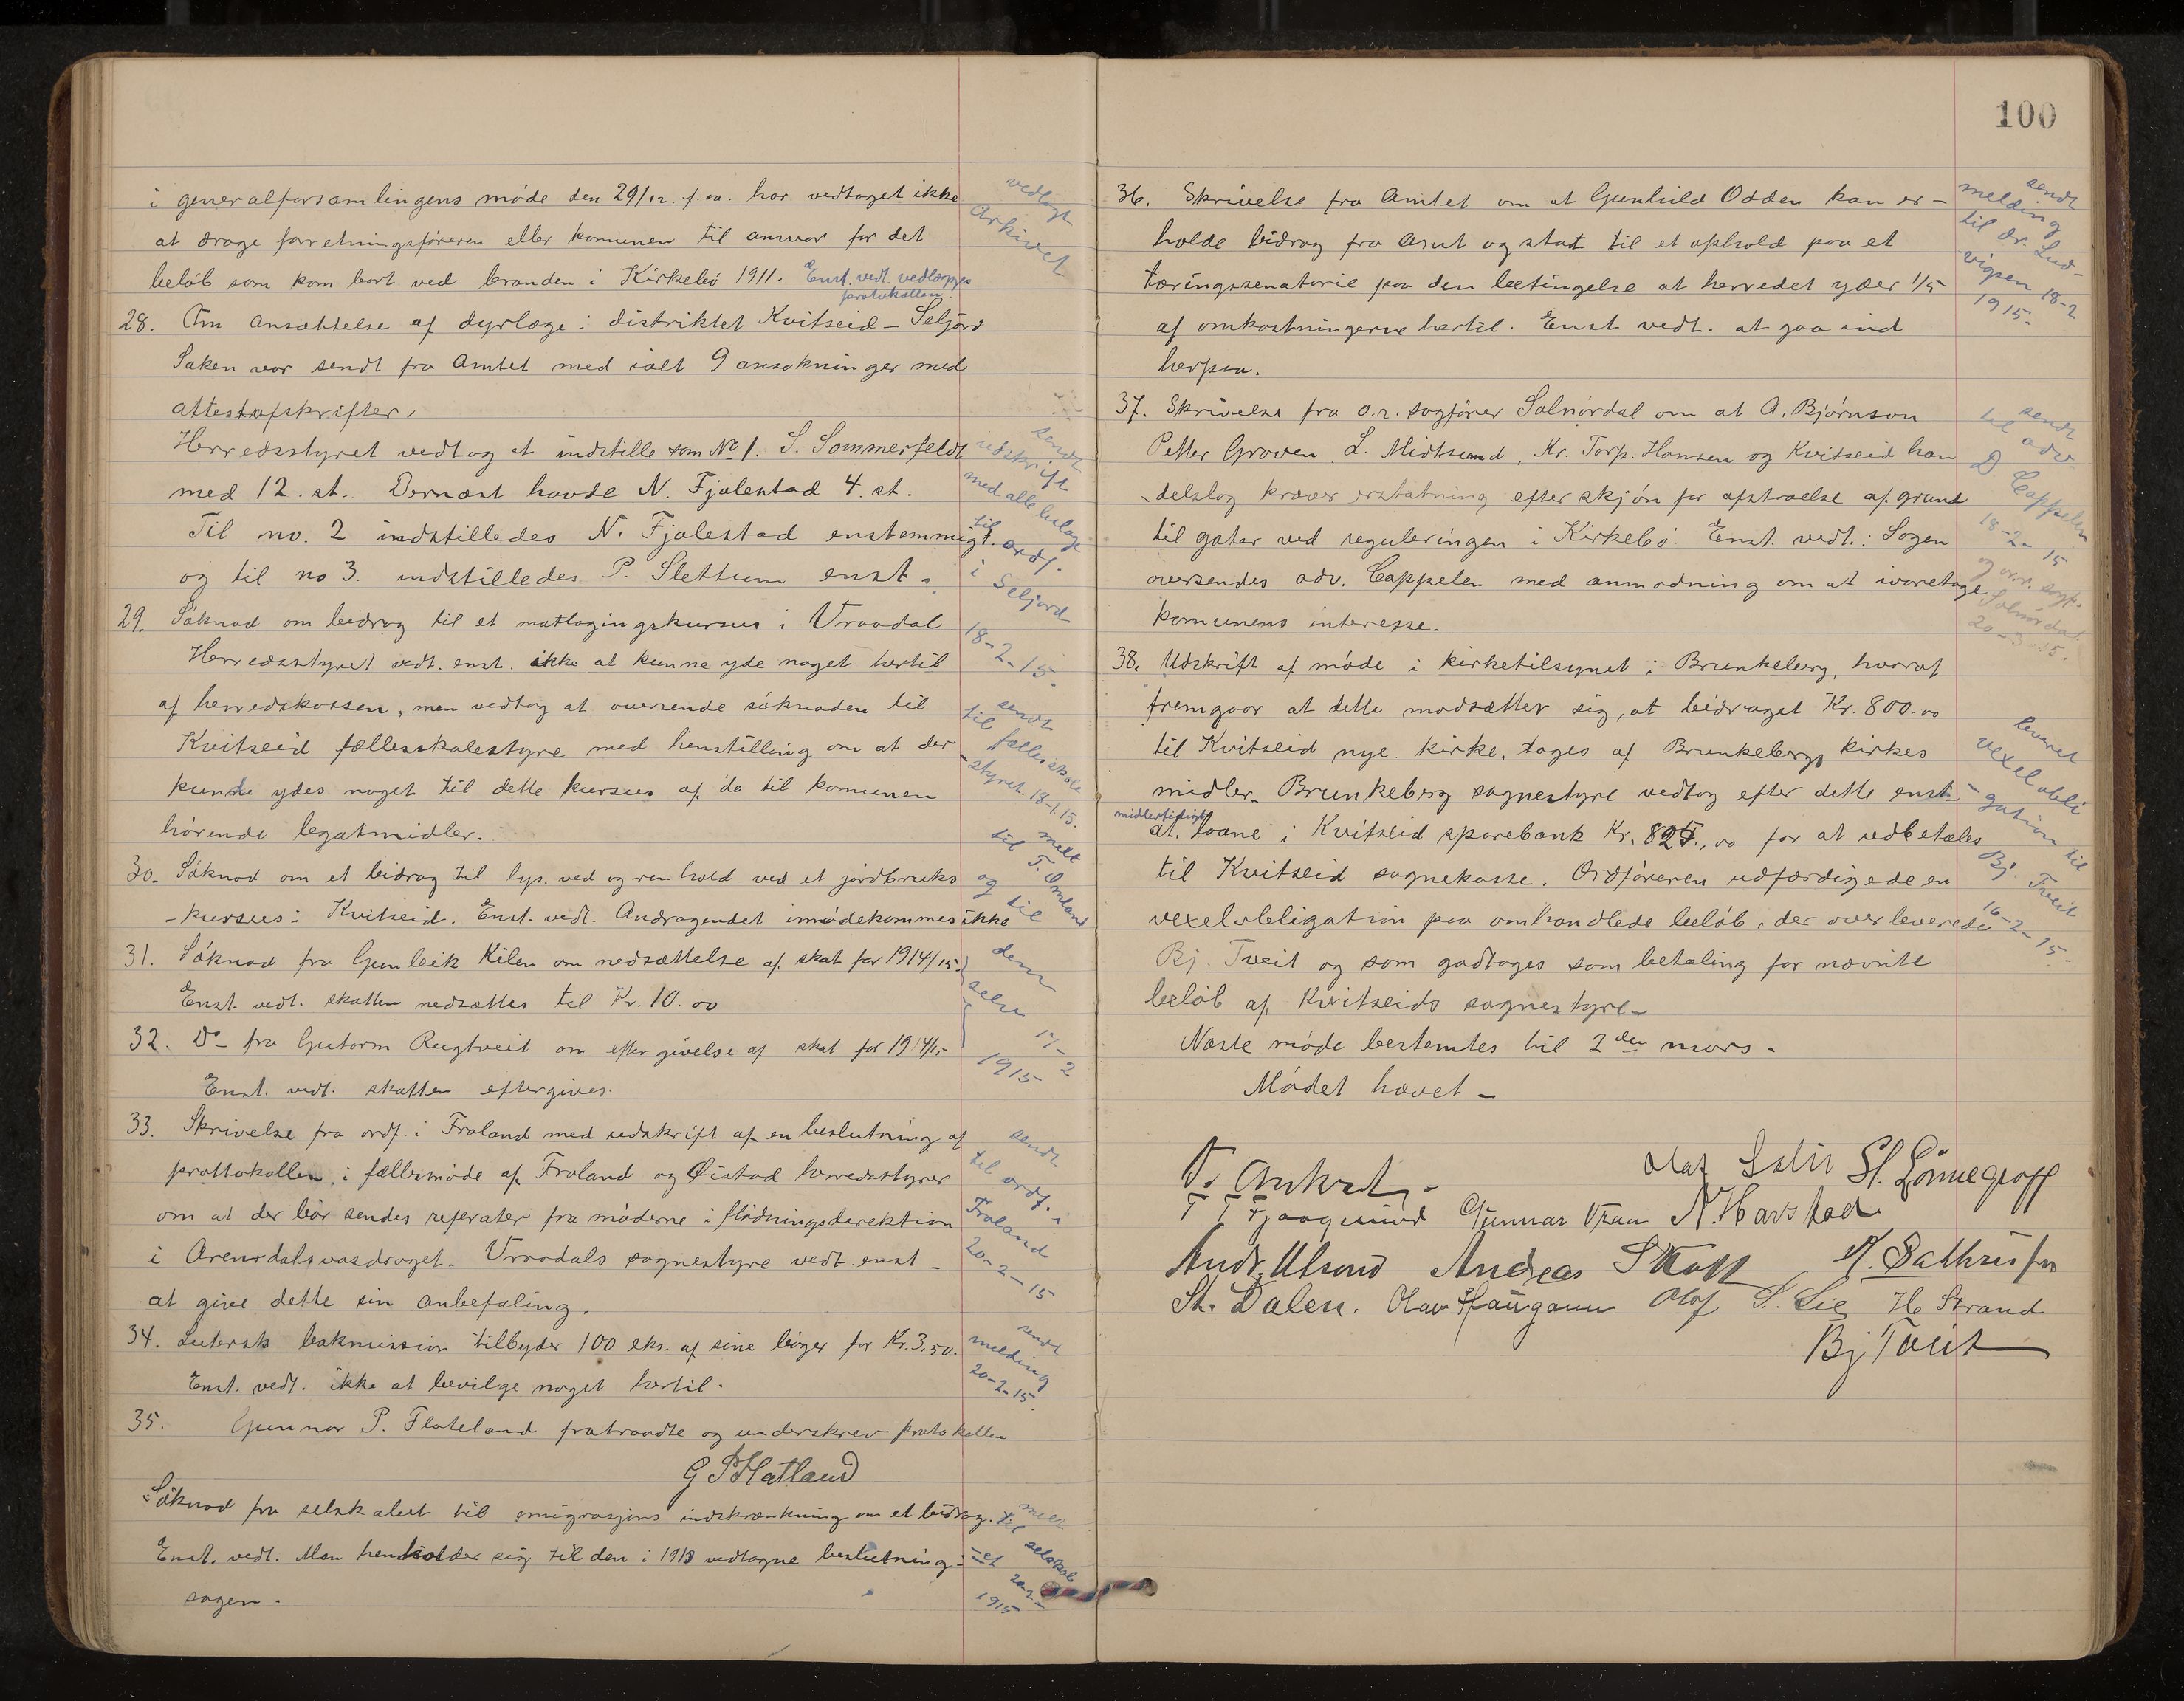 i generalforsamlingens møde den 29/12 f. aa. har vedtaget ikke
at drage forretningsføreren eller komunen til ansvar for det
beløb som kom bort ved branden i Kirkebø 1911. Enst. vedt. vedlægges
protokollen.
vedlagt
Arkivet
28. Om ansættelse af dyrlæge i distriktet Kvitseid – Seljord
Saken var sendt fra Amtet med ialt 9 ansøkninger med
attestafskrifter.
Herredsstyret vedtog at indstille som No 1. S. Sommerfeldt
med 12. st. Dernæst havde N. Fjalestad 4. st.
Til no. 2 indstilledes N. Fjalestad enstemmigt.
og til no 3. indstilledes P. Slettum enst.
sendt
udskrift
med alle bilage
til ordf.
i Seljord
18-2-15.
29. Søknad om bidrag til et matlagingskursus i Vraadal
Herredsstyret vedt. enst. ikke at kunne yde noget hertil
af herredskassen, men vedtog at oversende søknaden til
Kvitseid fællesskolestyre med henstilling om at der
kunde ydes noget til dette kursus af de til komunen
hørende legatmidler.
sendt
til fællesskole
-styret. 18-2-15.
30. Søknad om et bidrag til lys. ved og renhold ved et jordbruks
-kursus i Kvitseid. Enst. vedt. Andragendet imødekommes ikke
melt
til T. Omland
og til
31. Søknad fra Gunleik Kilen om nedsættelse af skat for 1914/15.
Enst. vedt. skatten nedsættes til Kr. 10.00
dem
selv 17-2
1915
32. Do – fra Gutorm Rugtveit om eftergivelse af skat for 1914/15
Enst. vedt. skatten eftergives.
33. Skrivelse fra ordf. i Froland med udskrift af en beslutning af
prottokollen, i fællesmøde af Froland og Øistad herredsstyrer
om at der bør sendes referater fra møderne i flødningsdirektion
i Arendalsvasdraget. Vraadals sognestyre vedt. enst –
at give dette sin anbefaling.
sendt
til ordf. i
Froland
20-2-15
34. Lutersk bokmission tilbyder 100 eks. af sine bøger for Kr. 3,50.
Enst. vedt. ikke at bevilge noget hertil.
sendt
melding
20-2-15.
35. Gunnar P. Flateland fratraadte og underskrev protokollen
G P Flatland
Søknad fra selskabet til emigrasjons indskrænkning om et bidrag.
Enst. vedt. Man henholder sig til den i 1913 vedtagne beslutning i
sagen.
melt
til selskab
-et 20-2-
1915
100
36. Skrivelse fra Amtet om at Gunhild Odden kan er–
holde bidrag fra Amt og stat til et ophold paa et
tæringssenatorie paa den betingelse at herredet yder 1/5
af omkostningerne hertil. Enst. vedt. at gaa ind
herpaa.
sendt
melding
til dr. Lud-
vigsen 18-2
1915.
37. Skrivelse fra o.r. sagfører Solnørdal om at A. Bjørnson
Petter Groven, L. Midtsund, Kr. Torp. Hansen og Kvitseid han
-delslag kræver erstatning efter skjøn for afstaaelse af grund
til gater ved reguleringen i Kirkebø. Enst. vedt.: Sagen
oversendes adv. Cappelen med anmodning om at ivaretage
komunens interesse.
sendt
til adv.
D. Cappelen
18-2-15
og o.r. sagf.
Solnørdal
20-3-15.
38. Udskrift af møde i kirketilsynet i Brunkeberg, hvoraf
fremgaar at dette modsætter sig, at bidraget Kr. 800.00
til Kvitseid nye kirke, tages af Brunkebergs kirkes
midler. Brunkeberg sognestyre vedtog efter dette enst.
midlertidigt
at laane i Kvitseid sparebank Kr. 825,00 for at udbetales
til Kvitseid sognekasse. Ordføreren udfærdigede en
vexelobligation paa omhandlede beløb, der overleveredes
Bj. Tveit og som godtages som betaling for nævnte
beløb af Kvitseids sognestyre.
leveret
vexelobli
-gation til
Bj. Tveit
16-2-15.
Næste møde bestemtes til 2den mars.
Mødet hævet –
Olaf Lslir St. Lønnegraff
Gunnar Vraa N. Harstad
Andr. Ulsund Andreas
St. Dalen. Olav Haugann Olaf S. Lie H. Strand
Bj Tveit